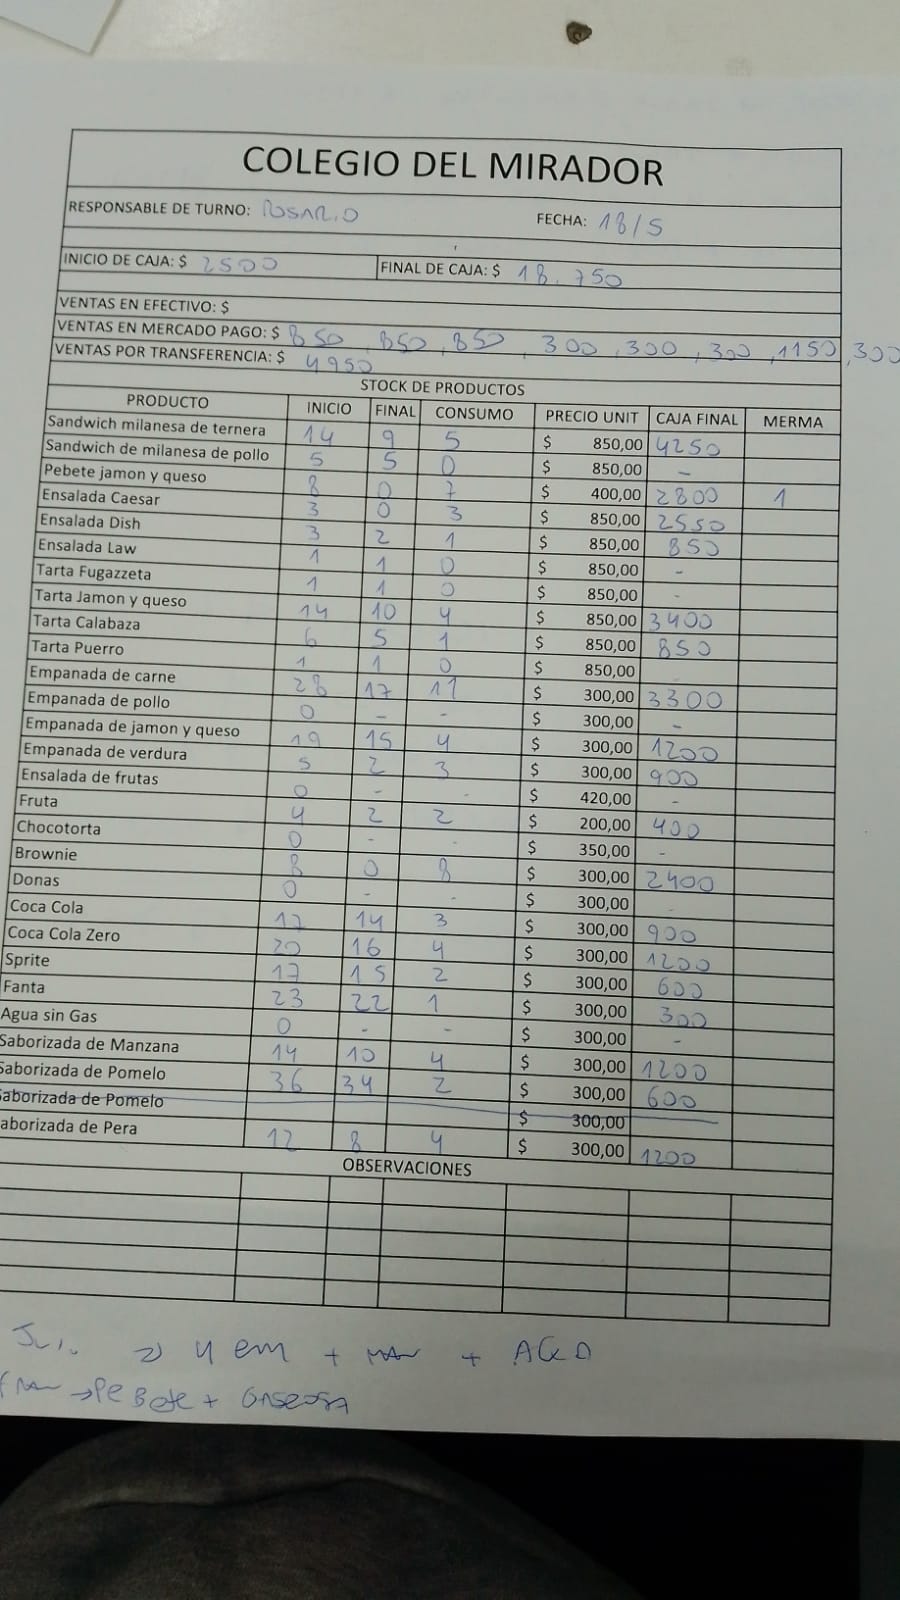 COLEGIO DEL MIRADOR
RESPONSABLE DE TURNO: ROSARIO FECHA: 18/5
INICIO DE CAJA: $ 2500 FINAL DE CAJA: $ 18.750
VENTAS EN EFECTIVO: $
VENTAS EN MERCADO PAGO: $ 850, 850, 850, 300, 300, 300, 1150, 300
VENTAS POR TRANSFERENCIA: $ 4950
STOCK DE PRODUCTOS
PRODUCTO INICIO FINAL CONSUMO PRECIO UNIT CAJA FINAL MERMA
Sandwich milanesa de ternera 14 9 5 $ 850,00 4250
Sandwich de milanesa de pollo 5 5 0 $ 850,00 -
Pebete jamon y queso 8 0 7 $ 400,00 2800 1
Ensalada Caesar 3 0 3 $ 850,00 2550
Ensalada Dish 3 2 1 $ 850,00 850
Ensalada Law 1 1 0 $ 850,00 -
Tarta Fugazzeta 1 1 0 $ 850,00 -
Tarta Jamon y queso 14 10 4 $ 850,00 3400
Tarta Calabaza 6 5 1 $ 850,00 850
Tarta Puerro 1 1 0 $ 850,00
Empanada de carne 28 17 11 $ 300,00 3300
Empanada de pollo 0 - - $ 300,00 -
Empanada de jamon y queso 19 15 4 $ 300,00 1200
Empanada de verdura 5 2 3 $ 300,00 900
Ensalada de frutas 0 - - $ 420,00 -
Fruta 4 2 2 $ 200,00 400
Chocotorta 0 - - $ 350,00 -
Brownie 8 0 8 $ 300,00 2400
Donas 0 - - $ 300,00 -
Coca Cola 17 14 3 $ 300,00 900
Coca Cola Zero 20 16 4 $ 300,00 1200
Sprite 17 15 2 $ 300,00 600
Fanta 23 22 1 $ 300,00 300
Agua sin Gas 0 - - $ 300,00 -
Saborizada de Manzana 14 10 4 $ 300,00 1200
Saborizada de Pomelo 36 34 2 $ 300,00 600
Saborizada de Pomelo $ 300,00
aborizada de Pera 12 8 4 $ 300,00 1200
OBSERVACIONES
4 em + + AGUA
→ PeBete + GASEOSA